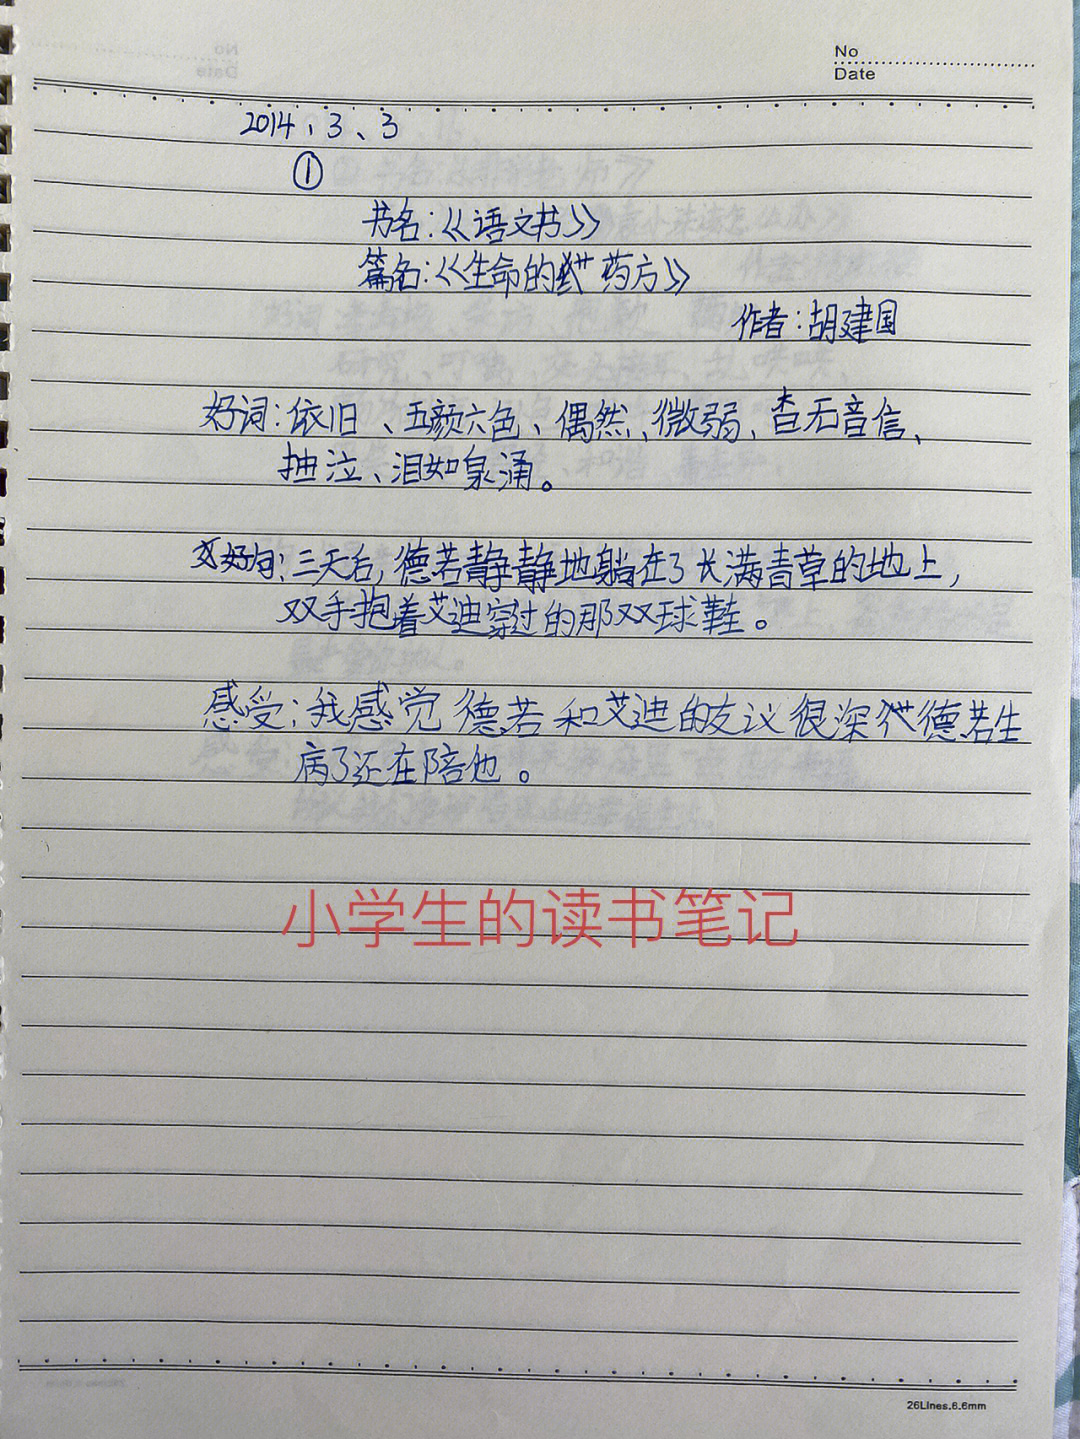 No
Date
2014、3、3
①
书名:《语文书》
篇名:《生命的药方》
作者:胡建国
好词:依旧、五颜六色、偶然、微弱、查无音信、
抽泣、泪如泉涌。
好句:三天后,德若静静地躺在了长满青草的地上,
双手抱着艾迪穿过的那双球鞋。
感受:我感觉德若和艾迪的友议很深德若生
病了还在陪他。
小学生的读书笔记
26Lines.6.6mm